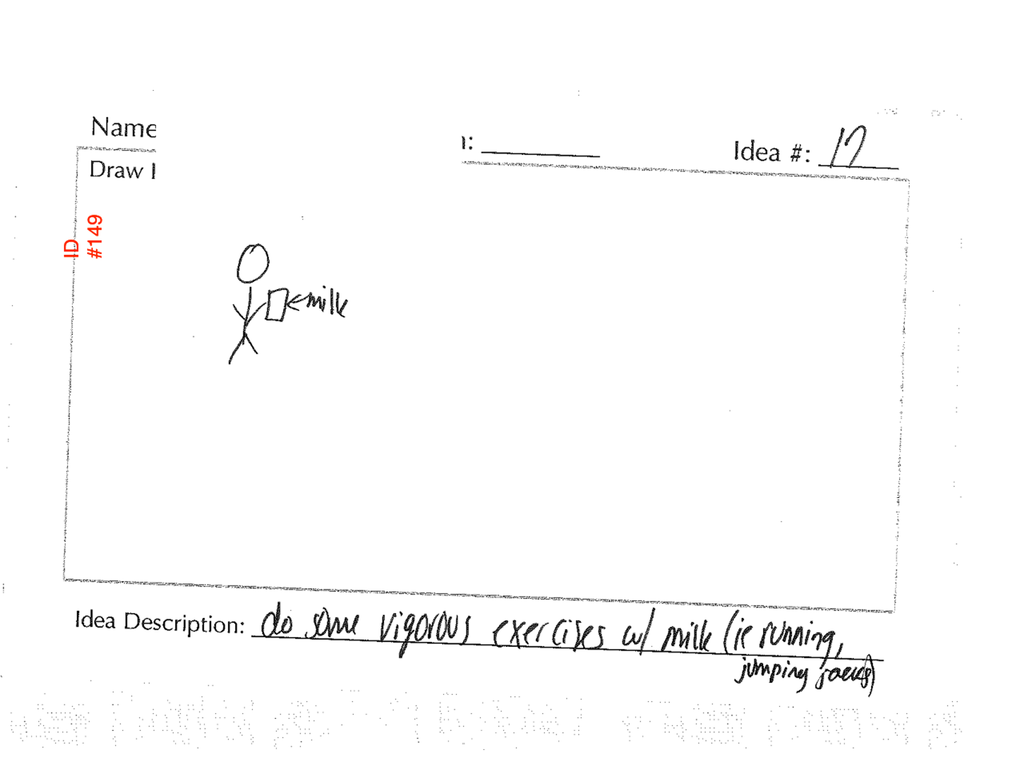 Name
Idea #: 17
Draw
ID
#149
milk
Idea Description: do some vigorous exercises w/ milk (ie running,
jumping jacks)